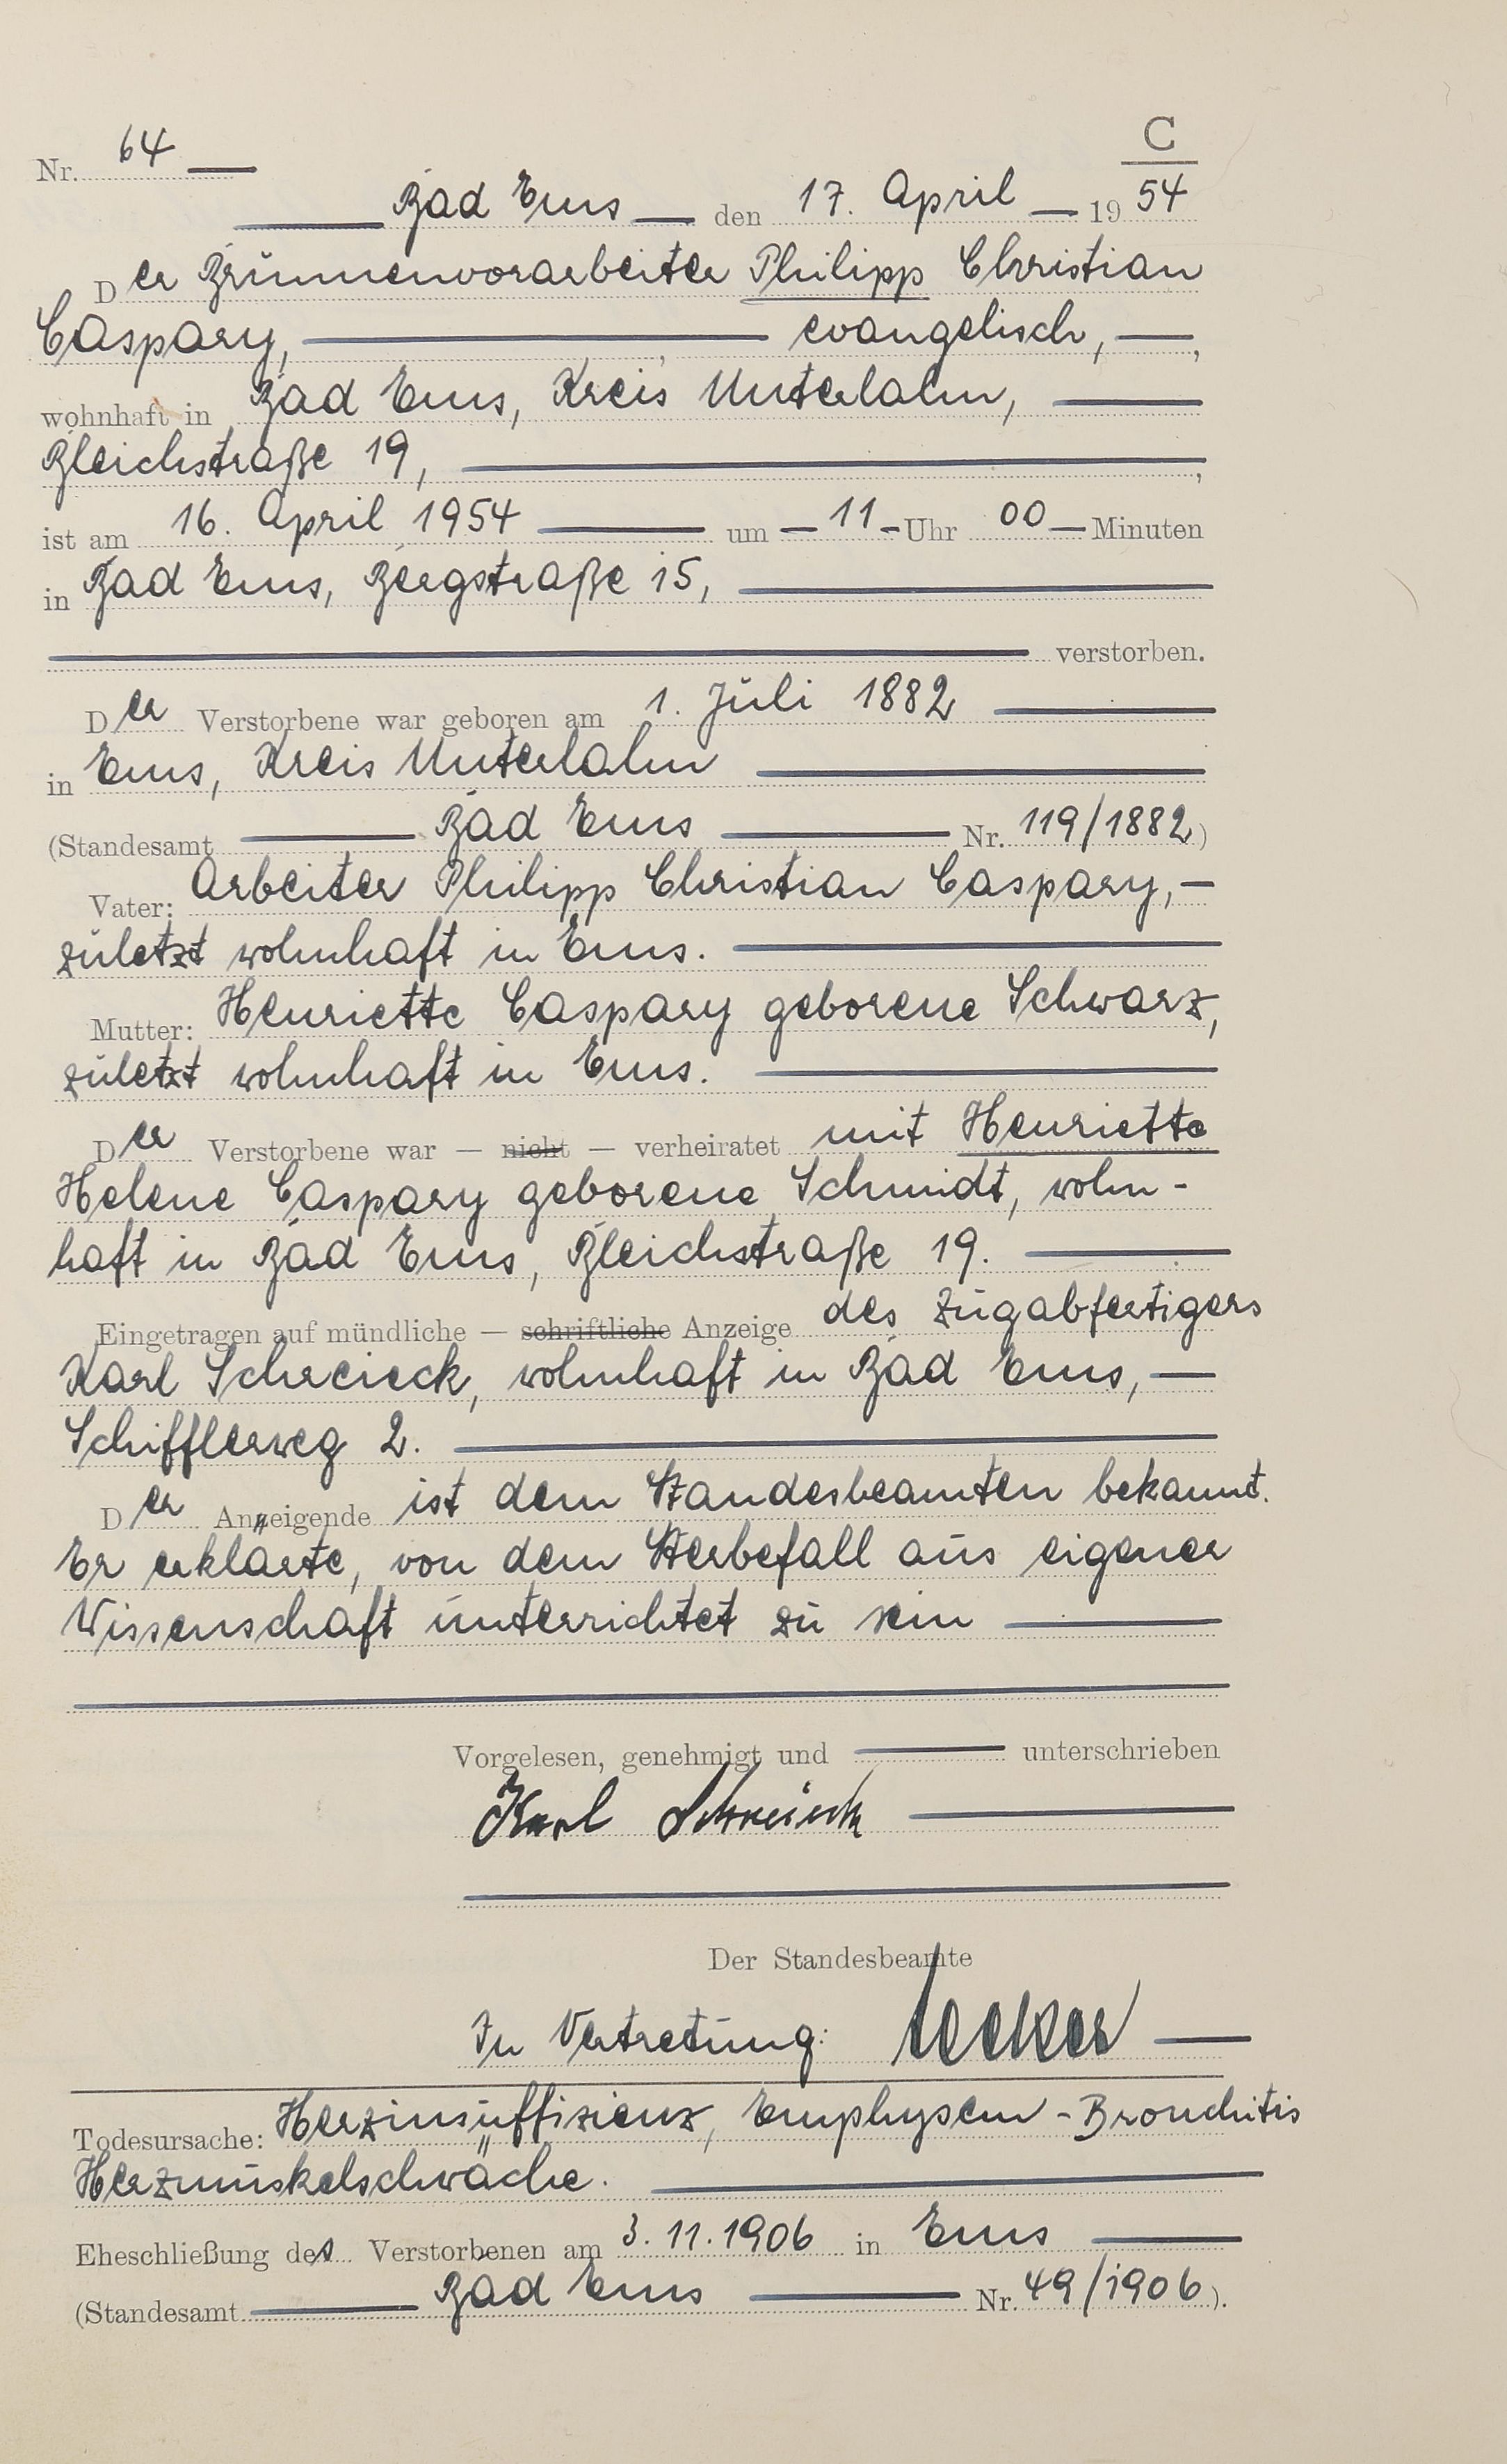 C
Nr. 64
Bad Ems den 17. April 1954
Der Brunnenvorarbeiter Philipp Christian
Caspary, evangelisch,
wohnhaft in Bad Ems, Kreis Unterlahn,
Bleichstraße 19,
ist am 16. April 1954 um 11 Uhr 00 Minuten
in Bad Ems, Bergstraße 15,
verstorben.
Der Verstorbene war geboren am 1. Juli 1882
in Ems, Kreis Unterlahn
(Standesamt Bad Ems Nr. 119/1882)
Vater: Arbeiter Philipp Christian Caspary,
zuletzt wohnhaft in Ems.
Mutter: Henriette Caspary geborene Schwarz,
zuletzt wohnhaft in Ems.
Der Verstorbene war — nicht — verheiratet mit Henriette
Helene Caspary geborene Schmidt, wohn-
haft in Bad Ems, Bleichstraße 19.
Eingetragen auf mündliche — schriftliche Anzeige des Zugabfertigers
Karl Schreieck, wohnhaft in Bad Ems,
Schifflerweg 2.
Der Anzeigende ist dem Standesbeamten bekannt.
Er erklärte, von dem Sterbefall aus eigener
Wissenschaft unterrichtet zu sein
Vorgelesen, genehmigt und unterschrieben
Karl Schreieck
Der Standesbeamte
In Vertretung:
Todesursache: Herzinsuffizienz, Emphysem-Bronchitis
Herzmuskelschwäche.
Eheschließung des Verstorbenen am 3.11.1906 in Ems
(Standesamt Bad Ems Nr. 49/1906).